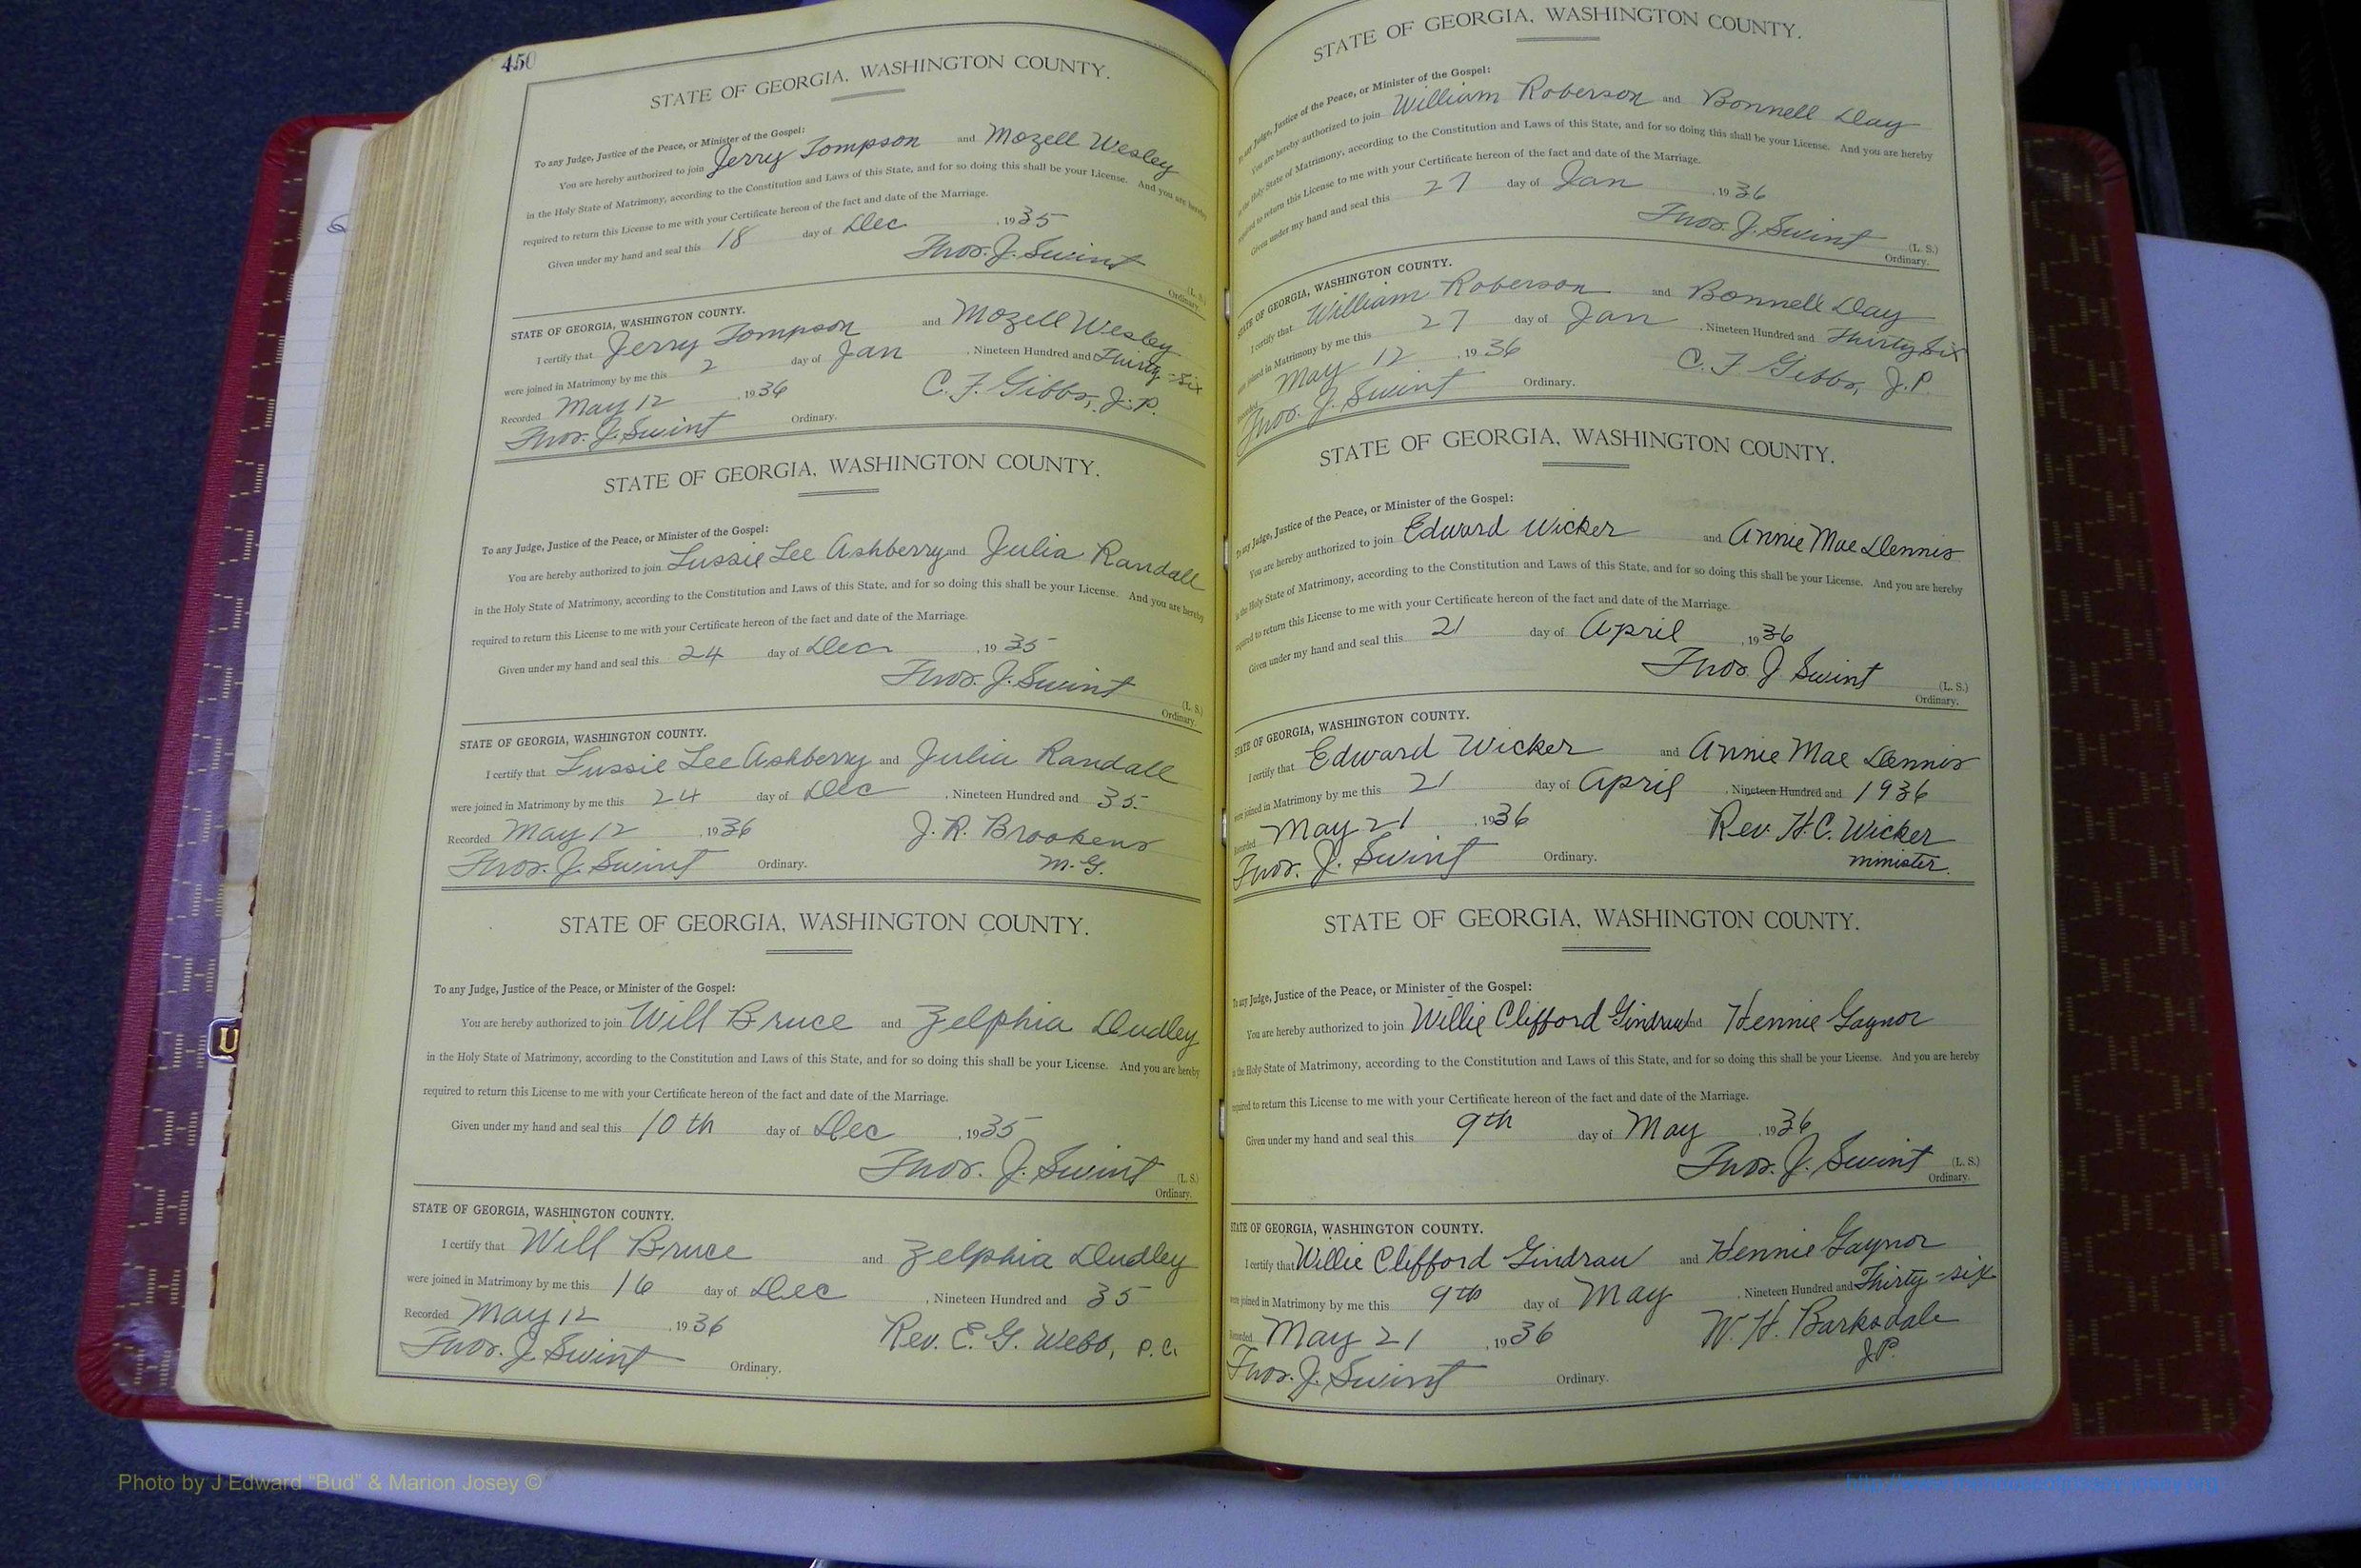 450
STATE OF GEORGIA, WASHINGTON COUNTY.
To any Judge, Justice of the Peace, or Minister of the Gospel:
You are hereby authorized to join Jerry Tompson and Mozell Wesley
in the Holy State of Matrimony, according to the Constitution and Laws of this State, and for so doing this shall be your License. And you are hereby
required to return this License to me with your Certificate hereon of the fact and date of the Marriage.
Given under my hand and seal this 18 day of Dec , 1935
Thos. J. Swint (L. S.)
Ordinary.
STATE OF GEORGIA, WASHINGTON COUNTY.
I certify that Jerry Tompson and Mozell Wesley
were joined in Matrimony by me this 2 day of Jan , Nineteen Hundred and Thirty-six
Recorded May 12 , 1936 C. F. Gibbs, J. P.
Thos. J. Swint Ordinary.
STATE OF GEORGIA, WASHINGTON COUNTY.
To any Judge, Justice of the Peace, or Minister of the Gospel:
You are hereby authorized to join Lussie Lee Ashberry and Julia Randall
in the Holy State of Matrimony, according to the Constitution and Laws of this State, and for so doing this shall be your License. And you are hereby
required to return this License to me with your Certificate hereon of the fact and date of the Marriage.
Given under my hand and seal this 24 day of Dec , 1935
Thos. J. Swint (L. S.)
Ordinary.
STATE OF GEORGIA, WASHINGTON COUNTY.
I certify that Lussie Lee Ashberry and Julia Randall
were joined in Matrimony by me this 24 day of Dec , Nineteen Hundred and 35.
Recorded May 12 , 1936 J. R. Brookens
Thos. J. Swint Ordinary. M. G.
STATE OF GEORGIA, WASHINGTON COUNTY.
To any Judge, Justice of the Peace, or Minister of the Gospel:
You are hereby authorized to join Will Bruce and Zelphia Dudley
in the Holy State of Matrimony, according to the Constitution and Laws of this State, and for so doing this shall be your License. And you are hereby
required to return this License to me with your Certificate hereon of the fact and date of the Marriage.
Given under my hand and seal this 10th day of Dec , 1935
Thos. J. Swint (L. S.)
Ordinary.
STATE OF GEORGIA, WASHINGTON COUNTY.
I certify that Will Bruce and Zelphia Dudley
were joined in Matrimony by me this 16 day of Dec , Nineteen Hundred and 35
Recorded May 12 , 1936 Rev. E. G. Webb, P. C.
Thos. J. Swint Ordinary.
STATE OF GEORGIA, WASHINGTON COUNTY.
To any Judge, Justice of the Peace, or Minister of the Gospel:
You are hereby authorized to join William Roberson and Bonnell Day
in the Holy State of Matrimony, according to the Constitution and Laws of this State, and for so doing this shall be your License. And you are hereby
required to return this License to me with your Certificate hereon of the fact and date of the Marriage.
Given under my hand and seal this 27 day of Jan , 1936
Thos. J. Swint (L. S.)
Ordinary.
STATE OF GEORGIA, WASHINGTON COUNTY.
I certify that William Roberson and Bonnell Day
were joined in Matrimony by me this 27 day of Jan , Nineteen Hundred and Thirty Six
Recorded May 12 , 1936 C. F. Gibbs, J. P.
Thos. J. Swint Ordinary.
STATE OF GEORGIA, WASHINGTON COUNTY.
To any Judge, Justice of the Peace, or Minister of the Gospel:
You are hereby authorized to join Edward Wicker and Annie Mae Dennis
in the Holy State of Matrimony, according to the Constitution and Laws of this State, and for so doing this shall be your License. And you are hereby
required to return this License to me with your Certificate hereon of the fact and date of the Marriage.
Given under my hand and seal this 21 day of April , 1936
Thos. J. Swint (L. S.)
Ordinary.
STATE OF GEORGIA, WASHINGTON COUNTY.
I certify that Edward Wicker and Annie Mae Dennis
were joined in Matrimony by me this 21 day of April , Nineteen Hundred and 1936
Recorded May 21 , 1936 Rev. H. C. Wicker
Thos. J. Swint Ordinary. minister.
STATE OF GEORGIA, WASHINGTON COUNTY.
To any Judge, Justice of the Peace, or Minister of the Gospel:
You are hereby authorized to join Willie Clifford Gindrau and Hennie Gaynor
in the Holy State of Matrimony, according to the Constitution and Laws of this State, and for so doing this shall be your License. And you are hereby
required to return this License to me with your Certificate hereon of the fact and date of the Marriage.
Given under my hand and seal this 9th day of May , 1936
Thos. J. Swint (L. S.)
Ordinary.
STATE OF GEORGIA, WASHINGTON COUNTY.
I certify that Willie Clifford Gindrau and Hennie Gaynor
were joined in Matrimony by me this 9th day of May , Nineteen Hundred and Thirty-six
Recorded May 21 , 1936 W. H. Barksdale
Thos. J. Swint Ordinary. J.P.
U
Photo by J Edward “Bud” & Marion Josey ©